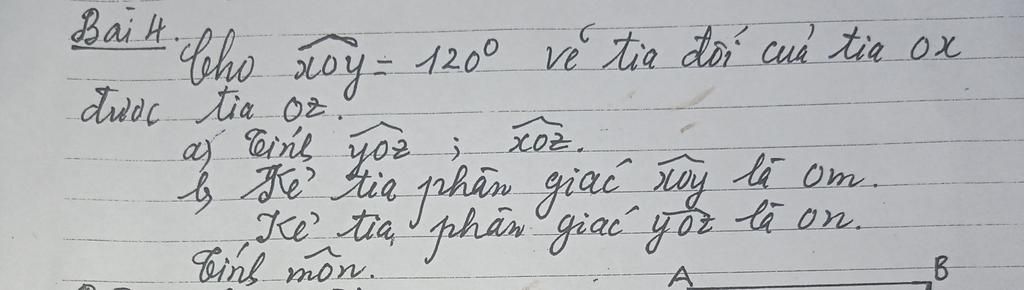 Bài 4.
Cho xOy = 120° vẽ tia đối của tia Ox
được tia Oz.
a) Tính yOz ; xOz.
b, Kẻ tia phân giác xOy là Om.
Kẻ tia phân giác yOz là On.
Tính mOn.
A B